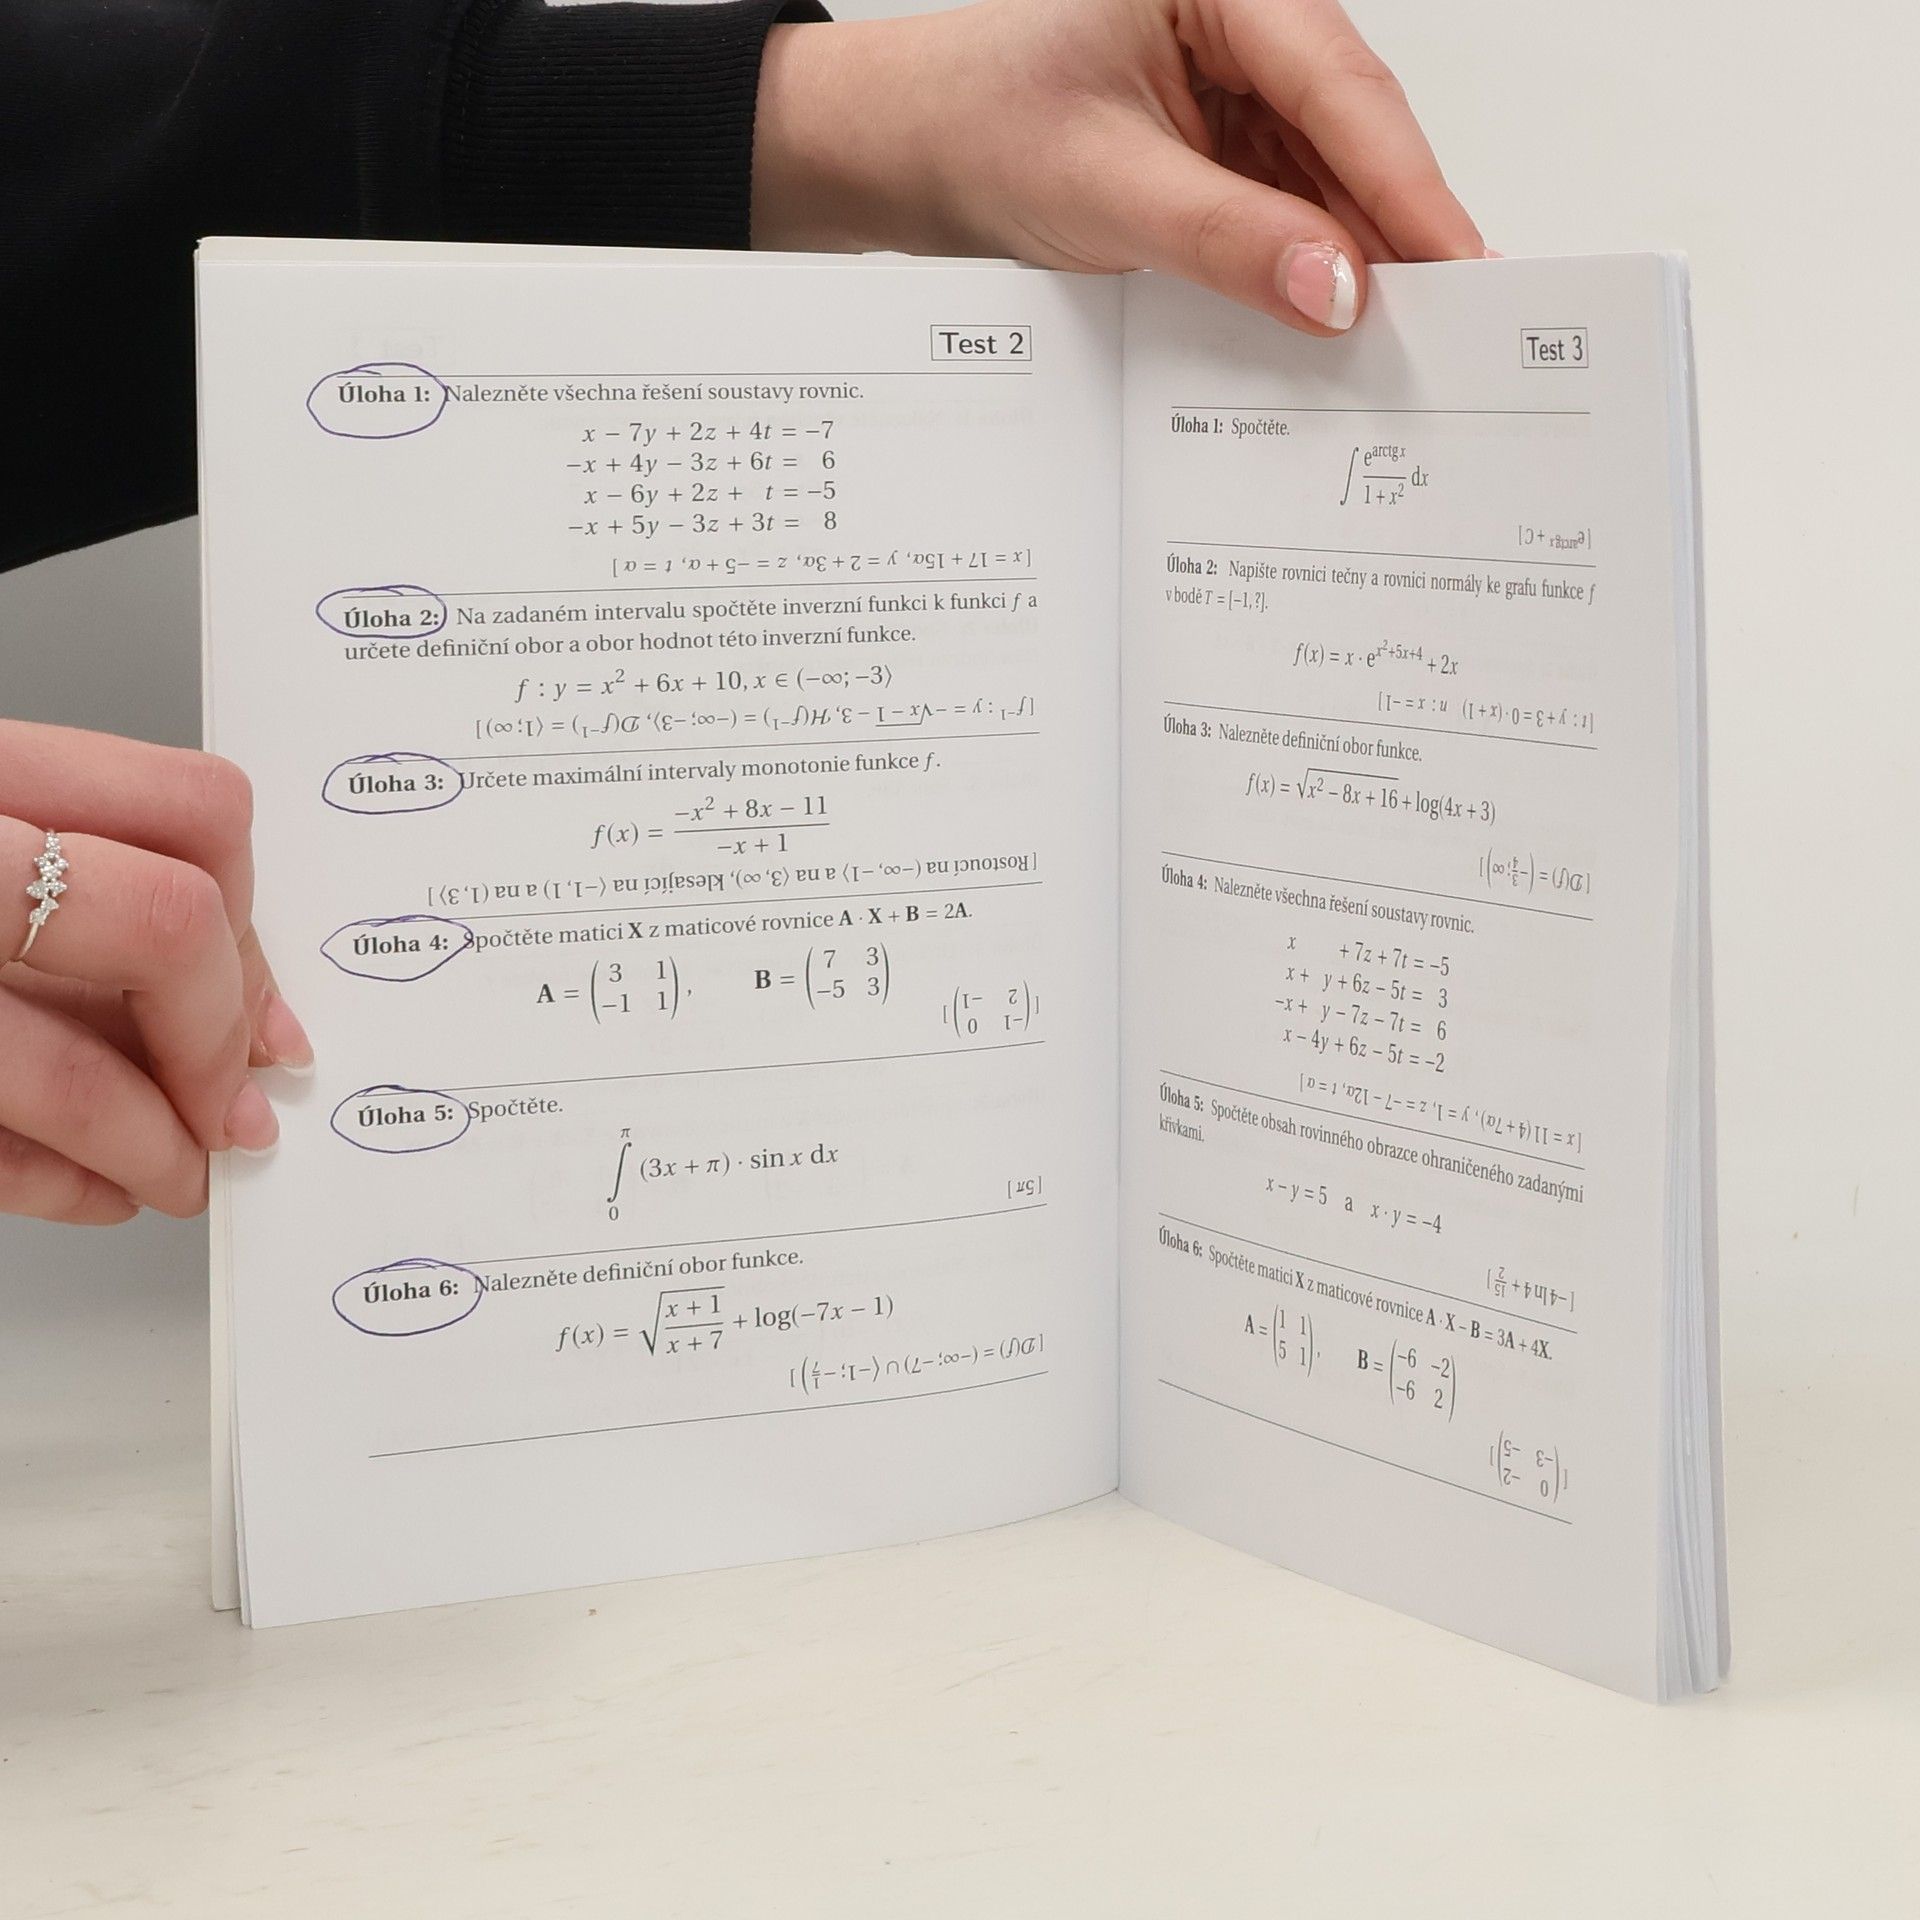 Test 2
Úloha 1: Nalezněte všechna řešení soustavy rovnic.
x − 7y + 2z + 4t = −7
−x + 4y − 3z + 6t = 6
x − 6y + 2z + t = −5
−x + 5y − 3z + 3t = 8
[ x = 17 + 15a, y = 2 + 3a, z = −5 + a, t = a ]
Úloha 2: Na zadaném intervalu spočtěte inverzní funkci k funkci f a
určete definiční obor a obor hodnot této inverzní funkce.
f : y = x² + 6x + 10, x ∈ (−∞; −3⟩
[ f⁻¹ : y = −√(x − 1) − 3, H(f⁻¹) = (−∞; −3⟩, D(f⁻¹) = ⟨1; ∞) ]
Úloha 3: Určete maximální intervaly monotonie funkce f.
f(x) = (−x² + 8x − 11)/(−x + 1)
[ Rostoucí na (−∞, −1⟩ a na ⟨3, ∞), klesající na ⟨−1, 1) a na (1, 3⟩ ]
Úloha 4: Spočtěte matici X z maticové rovnice A · X + B = 2A.
A = (3 1; −1 1), B = (7 3; −5 3)
[ (−1 0; 2 −1) ]
Úloha 5: Spočtěte.
∫₀^π (3x + π) · sin x dx
[ 5π ]
Úloha 6: Nalezněte definiční obor funkce.
f(x) = √((x + 1)/(x + 7)) + log(−7x − 1)
[ D(f) = (−∞; −7) ∪ ⟨−1; −1/7) ]
Test 3
Úloha 1: Spočtěte.
∫ e^(arctg x)/(1 + x²) dx
[ e^(arctg x) + C ]
Úloha 2: Napište rovnici tečny a rovnici normály ke grafu funkce f
v bodě T = [−1, ?].
f(x) = x · e^(x²+5x+4) + 2x
[ t : y + 3 = 0 · (x + 1) n : x = −1 ]
Úloha 3: Nalezněte definiční obor funkce.
f(x) = √(x² − 8x + 16) + log(4x + 3)
[ D(f) = (−3/4; ∞) ]
Úloha 4: Nalezněte všechna řešení soustavy rovnic.
x + 7z + 7t = −5
x + y + 6z − 5t = 3
−x + y − 7z − 7t = 6
x − 4y + 6z − 5t = −2
[ x = 11(4 + 7a), y = 1, z = −7 − 12a, t = a ]
Úloha 5: Spočtěte obsah rovinného obrazce ohraničeného zadanými
křivkami.
x − y = 5 a x · y = −4
[ −4 ln 4 + 15/2 ]
Úloha 6: Spočtěte matici X z maticové rovnice A · X − B = 3A + 4X.
A = (1 1; 5 1), B = (−6 −2; −6 2)
[ (0 −2; −3 −5) ]